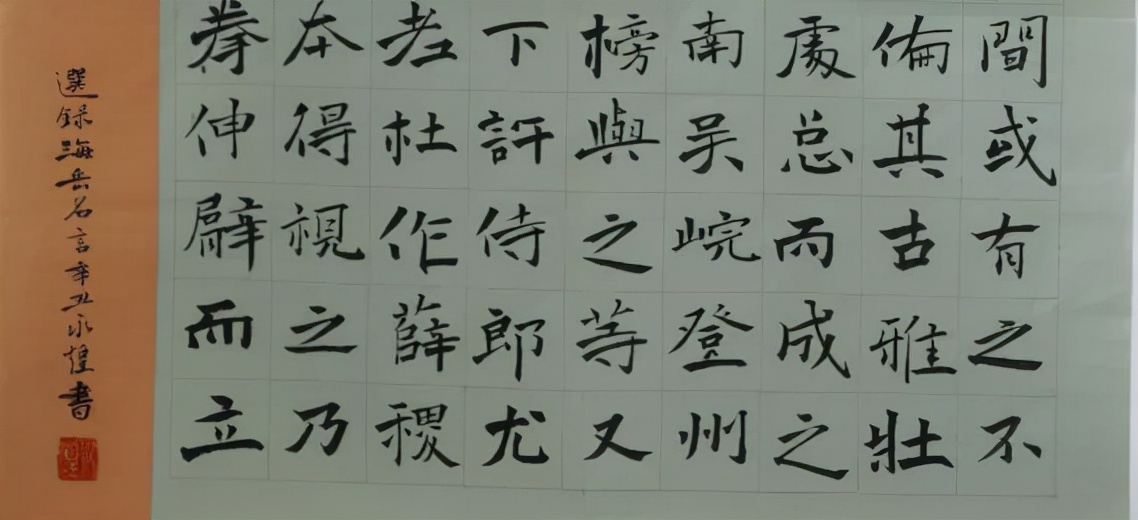 間或有之不
倫其古雅壯
處总而成之
南吴皖登州
榜與之等又
下訝侍郎尤
老杜作薛稷
本得視之乃
拳伸臂而立
選録海岳名言辛丑永煌書